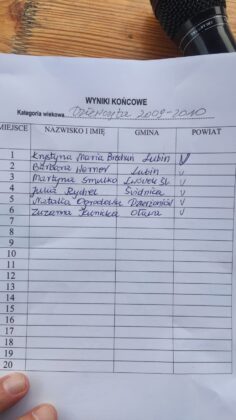 WYNIKI KOŃCOWE
Kategoria wiekowa Dziewczęta 2009-2010
MIEJSCE NAZWISKO I IMIĘ GMINA POWIAT
1 Krystyna Maria Lubin V
2 Barbara Werner Lubin V
3 Martyna Smulko Lwówek Śl. V
4 Julia Rychel Świdnica V
5 Natalia Ogrodowa Dzierżoniów V
6 Zuzanna Kunicka Oława V
7
8
9
10
11
12
13
14
15
16
17
18
19
20